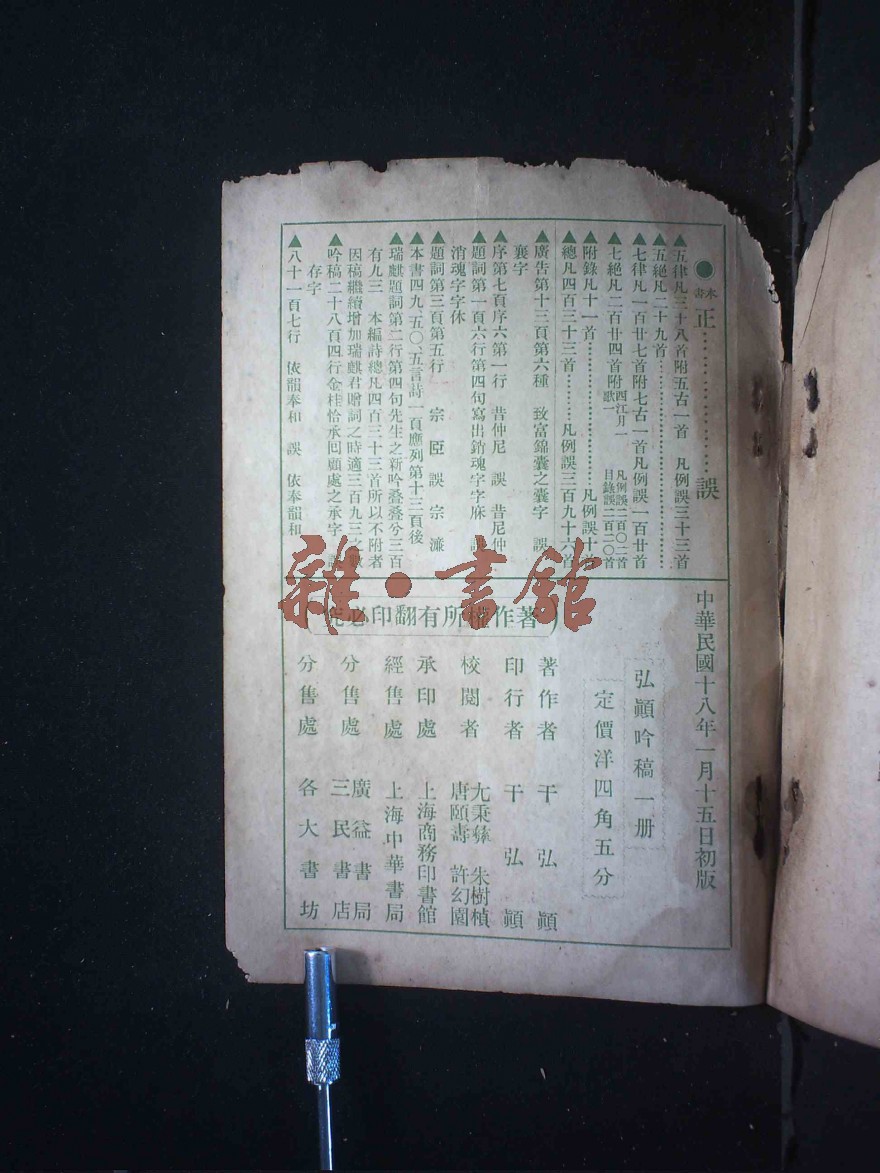 ●本書正…………誤
▲五律凡三十八首附五古一首 凡例誤三十三首
五絕凡二十九首…………
▲七律凡一百廿七首附七古一首凡例誤一百廿首
▲七絕凡二百廿四首附西江月一歌一 凡例誤二百〇二首目錄誤二百二〇首
附錄凡十一首…………凡例誤十首
▲總凡四百三十三首………凡例誤三百九十六首
▲廣告第十三頁第六種 致富錦囊之囊字 誤
襄字
▲序第七頁序六第一行 昔仲尼 誤 昔尼仲
▲題詞第一頁六行第四句寫出銷魂字字麻
消魂字字休
▲題詞第三頁第五行 宗臣 誤 宗濂
▲本書四九、五〇、五言詩一頁應列第十三頁後
▲瑞麒題詞第二行第四句先生之新吟叠叠兮三百
有九三 本編詩總凡四百三十三首所以不附者
因稿繼續增加瑞麒君贈詞之時適三百九三之
▲吟稿二十八頁四行金桂恰承回顧處之承字
存字
▲八十一頁七行 依韻奉和 誤 依奉韻和
中華民國十八年一月十五日初版
弘顚吟稿一册
定價洋四角五分
著作權所有翻印必究
著作者 干弘顚
印行者 干弘顚
校閱者 尤秉彝 朱樹楨 唐頤壽 許幻園
承印處 上海商務印書館
經售處 上海中華書局
分售處 廣益書局 三民書店
分售處 各大書坊
雜·書館